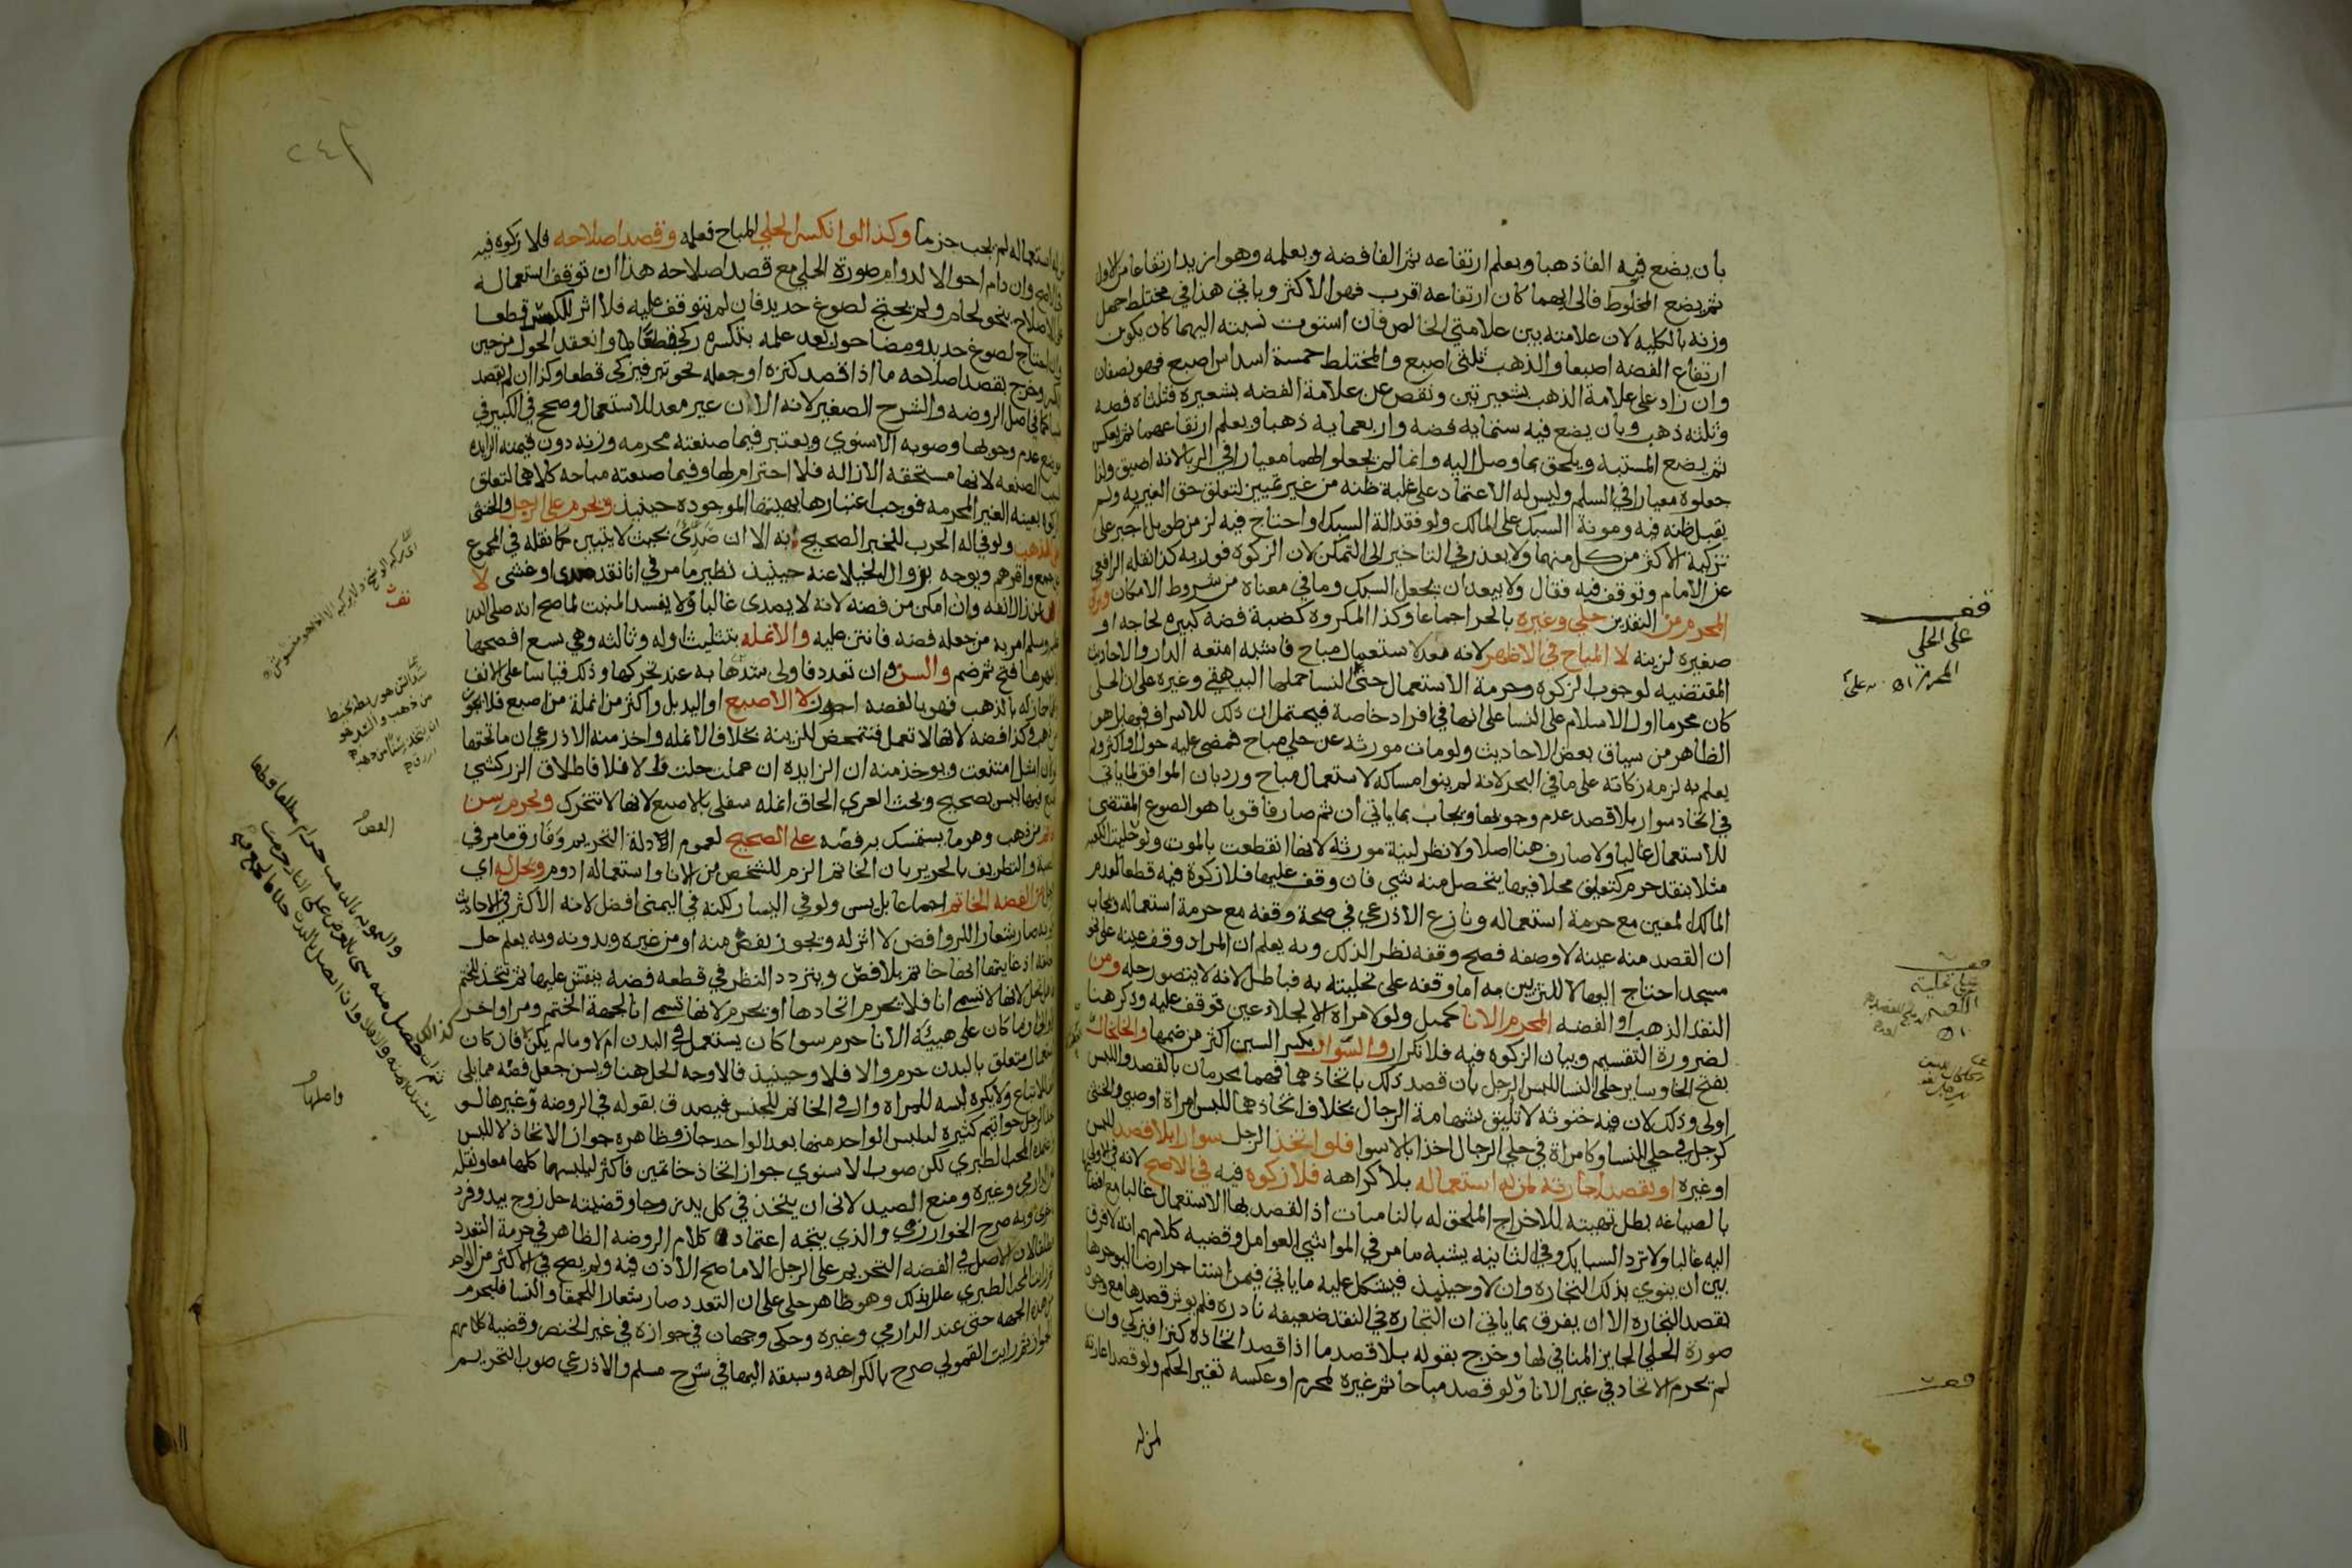 بان يضع فيه الفا ذهبا ويعلم ارتفاعه ثم الفا فضه ويعلمه وهو ازيد ارتفاعا من الاول
ثم يضع المخلوط فالى ايهما كان ارتفاعه اقرب فهو الاكثر وياتي هذا في مختلط جهل
وزنه بالكليه لان علامته بين علامتي الخالص فان استوت نسبته اليهما كان يكون
ارتفاع الفضه اصبعا والذهب ثلثي اصبع والمختلط خمسة اسداس اصبع فهو نصفان
وان زاد على علامة الذهب بشعيرتين ونقص عن علامة الفضه بشعيره فثلثاه فضه
وثلثه ذهب وبان يضع فيه ستمايه فضه واربعمايه ذهبا ويعلم ارتفاعهما ثم يعكس
ثم يضع المشتبه ويلحق بما وصل اليه وانما لم يجعلوا الما معيارا في الربا لانه اضيق ولذا
جعلوه معيارا في السلم وليس له الاعتماد على غلبة ظنه من غير تمييز لتعلق حق الغير به ولم
يقبل ظنه فيه ومونة السبك على المالك ولو فقد الة السبك او احتاج فيه لزمن طويل اجبر على
تزكية الاكثر من كل منهما ولا يعذر في التاخير الى التمكن لان الزكوه فوريه كذا نقله الرافعي
عن الامام وتوقف فيه فقال ولا يبعد ان يجعل السبك وما في معناه من شروط الامكان ويزكى
المحرم من النقدين حلي وغيره بالجر اجماعا وكذا المكروه كضبة فضه كبيره لحاجه او
صغيره لزينه لا المباح في الاظهر لانه معد لاستعمال مباح فاشبه امتعه الدار والاحاديث
المقتضيه لوجوب الزكوه وحرمة الاستعمال حتى النسا حملها البيهقي وغيره على ان الحلي
كان محرما اول الاسلام على النسا على انها في افراد خاصة فيحتمل ان ذلك للاسراف فيها بل هو
الظاهر من سياق بعض الاحاديث ولو مات مورثه عن حلي مباح فمضى عليه حول او اكثر ولم
يعلم به لزمه زكاته على ما في البحر لانه لم ينو امساكه لاستعمال مباح ورد بان الموافق لما ياتي
في اتخاذ سوار بلا قصد عدم وجوبها ويجاب بما ياتي ان ثم صارفا قويا هو الصوغ المقتضي
للاستعمال غالبا ولا صارف هنا اصلا ولا نظر لنية مورثه لانها انقطعت بالموت ولو حليت الكعبه
مثلا بنقد حرم كتعليق محلا فيها يتحصل منه شي فان وقف عليها فلا زكوة فيه قطعا لعدم
المالك المعين مع حرمة استعماله ونازع الاذرعي في صحة وقفه مع حرمة استعماله ويجاب
ان القصد منه عينه لا وصفه فصح وقفه نظرا لذلك وبه يعلم ان المراد وقف عينه على نحو
مسجد احتاج اليها لا للتزيين به اما وقفه على تحليته به فباطل لانه لا يتصور حله ومن
النقد الذهب او الفضه المحرم الانا كحيل ولو لامراة الا لجلاء عين توقف عليه وذكر هنا
لضرورة التقسيم وبيان الزكوه فيه فلا تكرار والسوار بكسر السين اكثر من ضمها والخلخال
بفتح الخا وساير حلى النسا للبس الرجل بان قصد ذلك باتخاذهما فهما محرمان بالقصد واللبس
اولى وذلك لان فيه خنوثه لا تليق بشهامة الرجال بخلاف اتخاذهما للبس امراة او صبي والخنثى
كرجل في حلي النسا وكامراة في حلي الرجال اخذا بالاسوا فلو اتخذ الرجل سوارا بلا قصد للبس
او غيره او بقصد اجارته لمن له استعماله بلا كراهه فلا زكوه فيه في الاصح لانه في الاولى
بالصياغه بطل تهيئه للاخراج الملحق له بالناميات اذ القصد بها الاستعمال غالبا مع افضا
اليه غالبا ولا ترد السبايك وفي الثانيه يشبه ما مر في المواشي العوامل وقضيه كلامهم انه لا فرق
بين ان ينوي بذلك التجاره وان لا وحينيذ فيشكل عليه ما ياتي فيمن استاجر ارضا ليوجرها
بقصد التجاره الا ان يفرق بما ياتي ان التجاره في النقد ضعيفه نادره فلم يوثر قصدها مع وجود
صورة الحلي الجايز المنافي لها وخرج بقوله بلا قصد ما اذا قصد اتخاذه كنزا فيزكي وان
لم يحرم الاتخاذ في غير الانا ولو قصد مباحا ثم غيره لمحرم او عكسه تغير الحكم ولو قصد اعارته
لمن له
قف
على الحلي
المحرم
استعماله لم يجب جزما وكذا لو انكسر الحلي المباح فعلمه وقصد اصلاحه فلا زكوه فيه
وان دام احوالا لدوام صورة الحلي مع قصد اصلاحه هذا ان توقف استعماله
على الاصلاح بنحو لحام ولم يحتج لصوغ جديد فان لم يتوقف عليه فلا اثر للكسر قطعا
وان احتاج لصوغ جديد ومضا حول بعد علمه بتكسره زكي قطعا وانعقد الحول من حين
وخرج بقصد اصلاحه ما اذا قصد كنزه او جعله نحو تبر فيزكى قطعا وكذا ان لم يقصد
كما في اصل الروضه والشرح الصغير لانه الان غير معد للاستعمال وصحح في الكبير في
موضع عدم وجوبها وصوبه الاسنوي ويعتبر فيما صنعته محرمه وزنه دون قيمته الزايده
بسبب الصنعه لانها مستحقة الازاله فلا احترام لها وفيما صنعته مباحه كلاهما لتعلق
بعينه الغير المحرمه فوجب اعتبارها بهيئتها الموجوده حينيذ ويحرم على الرجل والخنثى
الذهب ولو في اله الحرب للخبر الصحيح به الا ان صدئ بحيث لا يتبين كما نقله في المجموع
واقرهم ويوجه بزوال الخيلا عنه حينيذ نظير ما مر في انا نقد صدى او غشى لا
الانف وان امكن من فضه لانه لا يصدى غالبا ولا يفسد المنبت لما صح انه صلى الله
وسلم امر به من جعله فضه فانتن عليه والانمله بتثليث اوله وثالثه وهي تسع افصحها
فتح ثم ضم والسن وان تعدد فاولى شدها به عند تحركها وذلك قياسا على الانف
جاز له بالذهب فهو بالفضه اجوز لا الاصبع او اليد بل واكثر من انملة من اصبع فلا يجوز
وكذا فضه لانها لا تعمل فتتمحض للزينه بخلاف الانمله واخذ منه الاذرعي ان ما تحتها
ان اشل امتنعت ويوخذ منه ان الزايده ان عملت حلت والا فلا فاطلاق الزركشي
فيها ليس بصحيح وبحث الغزي الحاق انمله سفلى بالاصبع لانها لا تتحرك ويحرم سن
من ذهب وهو ما يستمسك به فصه على الصحيح لعموم الادلة التحريم وفارق ما مر في
والتطريف بالحرير بان الخاتم الزم للشخص من الانا واستعماله ادوم ويحل له اي
من الفضه الخاتم اجماعا بل يسن ولو في اليسار لكنه في اليمنى افضل لانه الاكثر في الاحاديث
صار شعارا للروافض لا اثر له ويجوز بفص منه او من غيره وبدونه وبه يعلم حل
اذ غايتها انها خاتم بلا فص ويتردد النظر في قطعه فضه ينقش عليها ثم يتخذ للختم
لانها لا تسمى انا فلا يحرم اتخاذها او يحرم لانها تسمى انا لجهة الختم ومر اواخر
ان ما كان على هيئة الانا حرم سوا كان يستعمل في البدن ام لا وما لم يكن فان كان
استعمال متعلق بالبدن حرم والا فلا وحينيذ فالاوجه الحل هنا ويسن جعل فصه مما يلي
للاتباع ولا يكره لبسه للمراه وال في الخاتم للجنس فيصدق بقوله في الروضه وغيرها لو
الرجل خواتيم كثيره ليلبس الواحد منها بعد الواحد جاز وظاهره جواز الاتخاذ لا للبس
المحب الطبري لكن صوب الاسنوي جواز اتخاذ خاتمين فاكثر ليلبسها كلها معا ونقله
وغيره ومنع الصيدلاني ان يتخذ في كل يد زوجا وقضيته حل زوج بيد وفرد
وبه صرح الخوارزمي والذي يتجه اعتماد كلام الروضه الظاهر في حرمة التعدد
لان الاصل في الفضه التحريم على الرجل الا ما صح الاذن فيه ولم يصح في الاكثر من الواحد
المحب الطبري علل بذلك وهو ظاهر جلي على ان التعدد صار شعارا للحمقا والنسا فليحرم
هذه الجهه حتى عند الدارمي وغيره وحكى وجهان في جوازه في غير الخنصر وقضيه كلامهم
الجواز ثم رايت القمولي صرح بالكراهه وسبقه اليها في شرح مسلم والاذرعي صوب التحريم